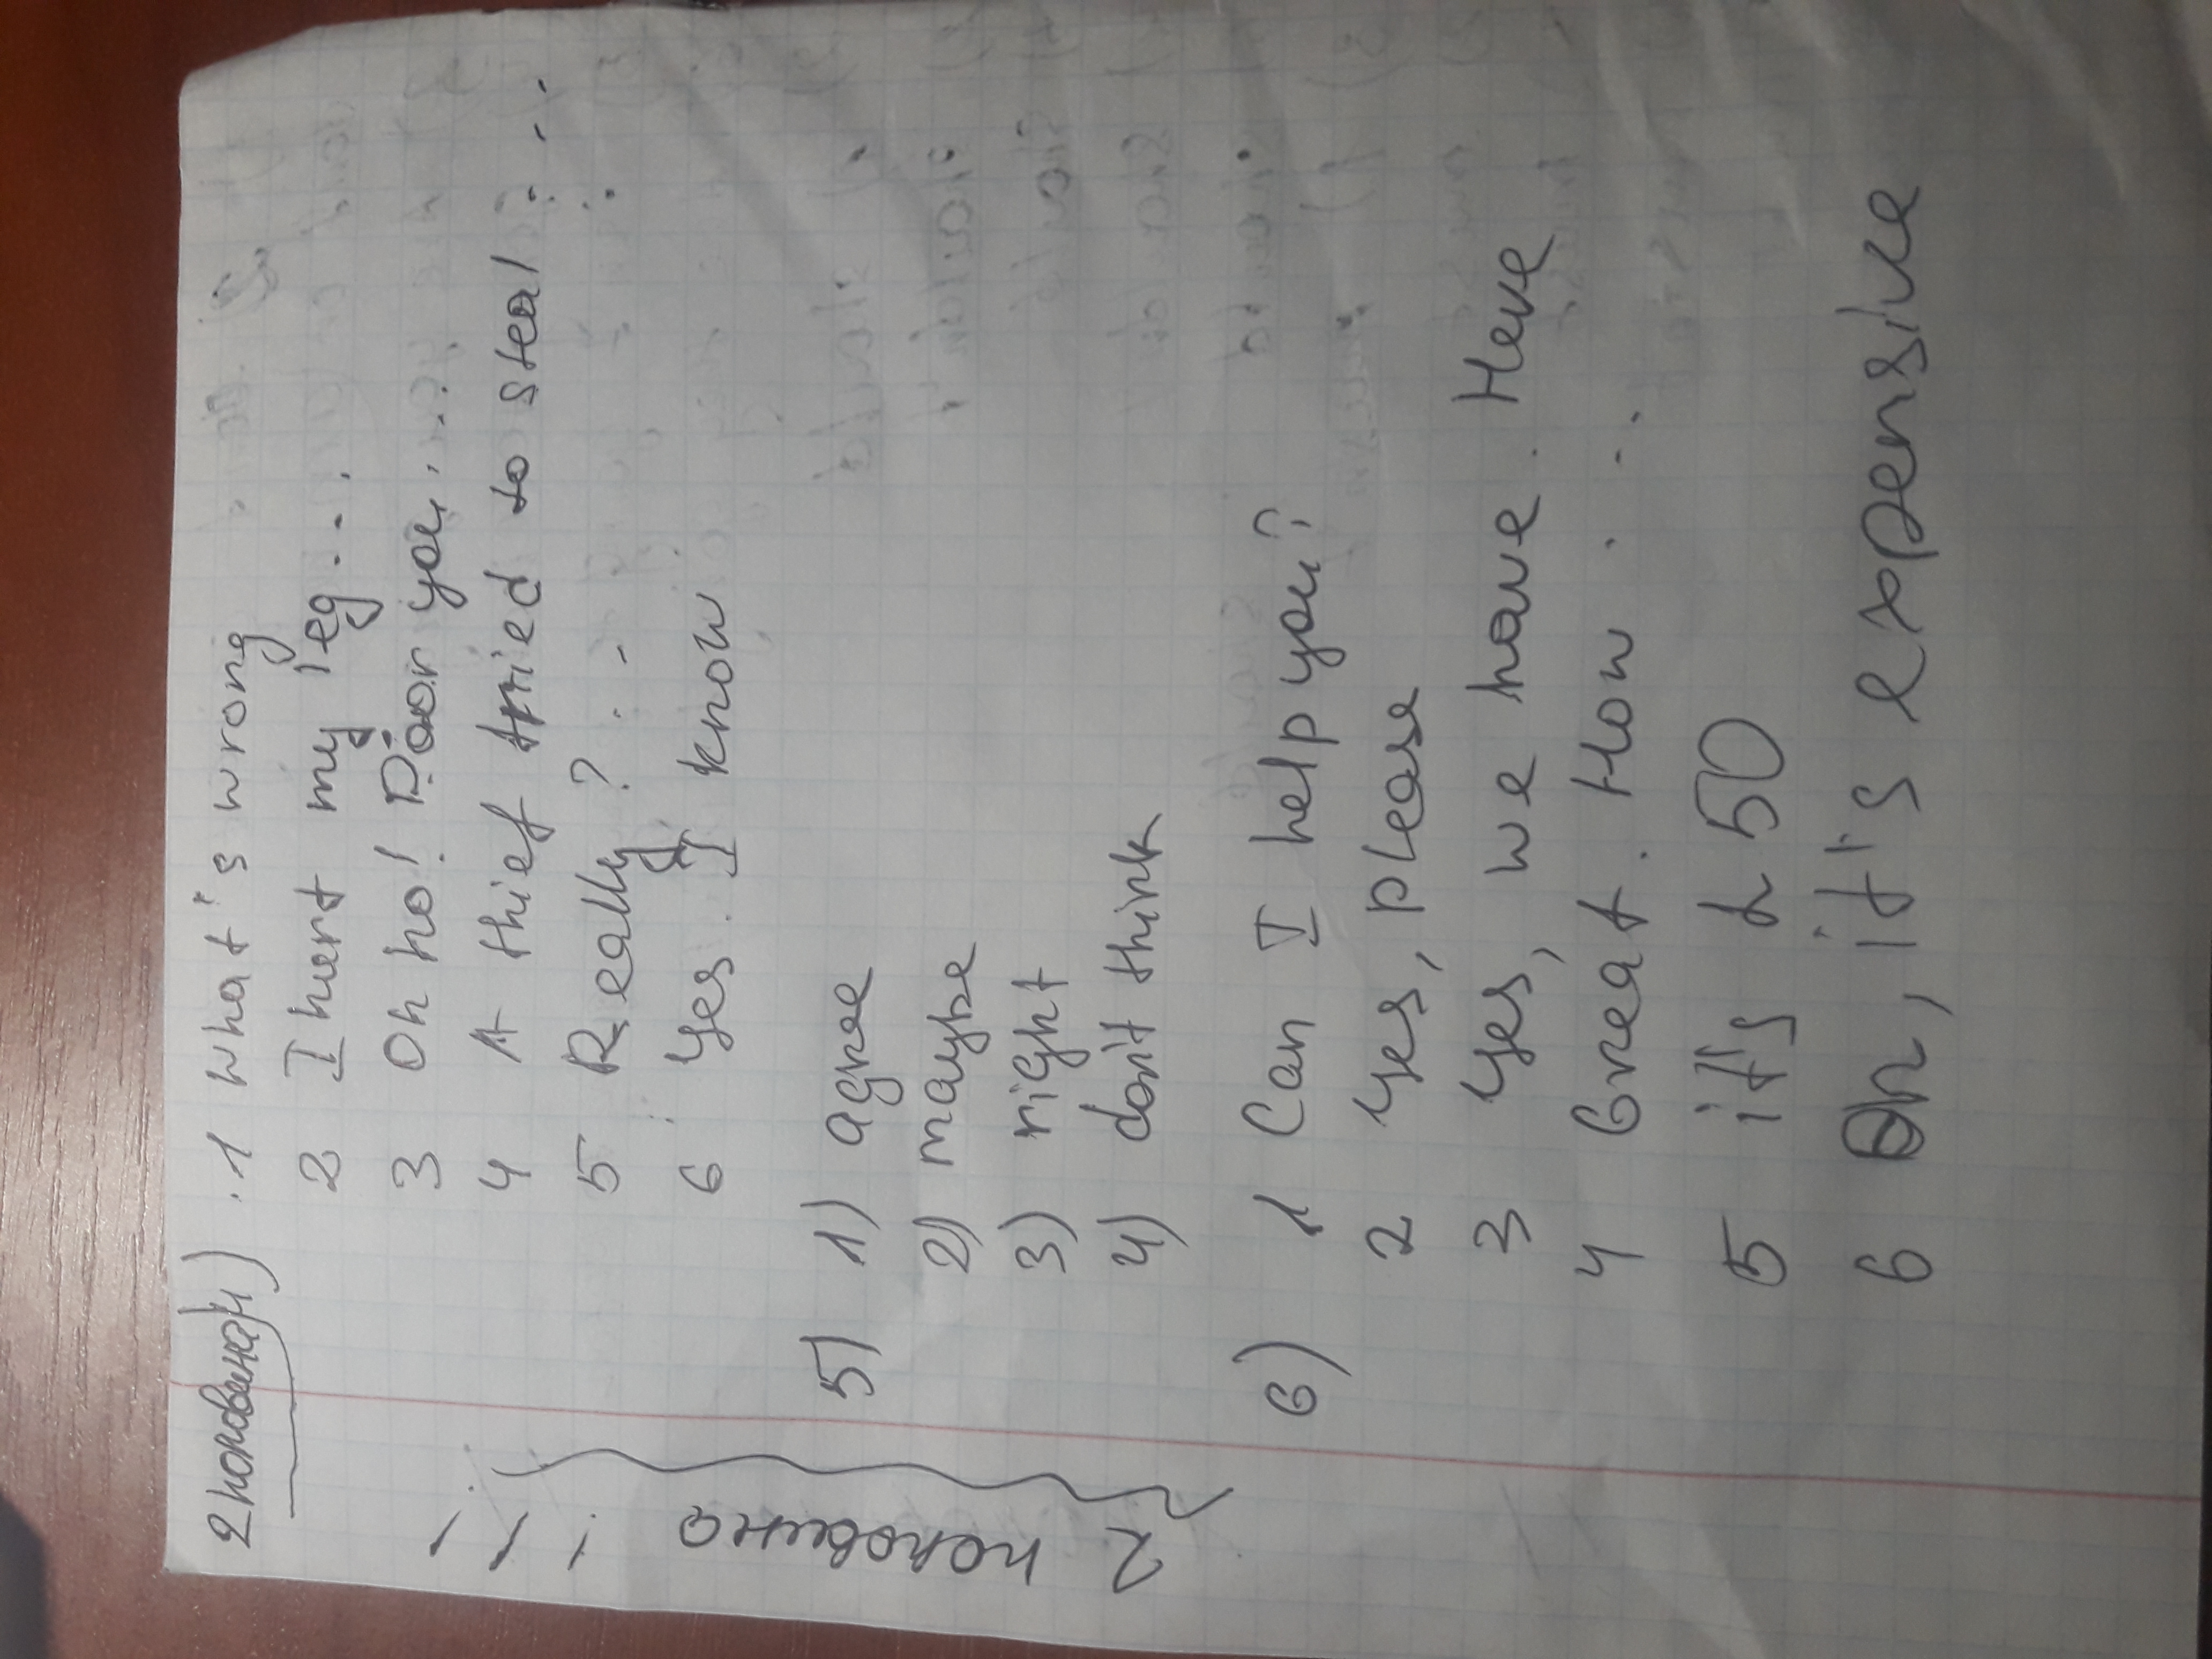 2 половина 4) .1 what's wrong
2 I hurt my leg...
3 Oh no! Poor you...
4 A thief tried to steal...
5 Really? ...
6 Yes. I know
5) 1) agree
2) maybe
3) right
4) don't think
6) 1 Can I help you?
2 Yes, please
3 Yes, we have. Here
4 Great. How ...
5 it's £50
6 Oh, it's expensive
2 половина